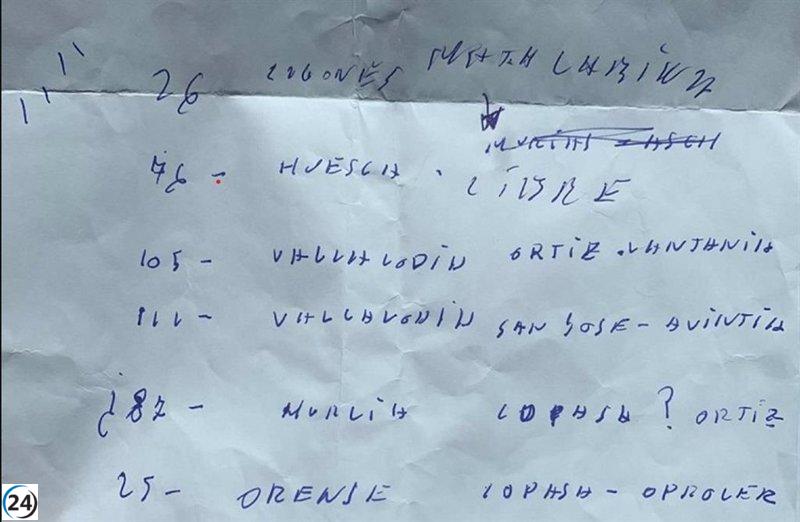 26 LOGONES MATA LABIKZ
76 - HUESCA . LIBRE
105 - VALLALODIN ORTIZ . LANTANIA
111 - VALLALODIN SAN JOSE - AVINTIA
¿ 87 - MURCIA COPASA ? ORTIZ
25 - ORENSE COPASA - OPROLER
24